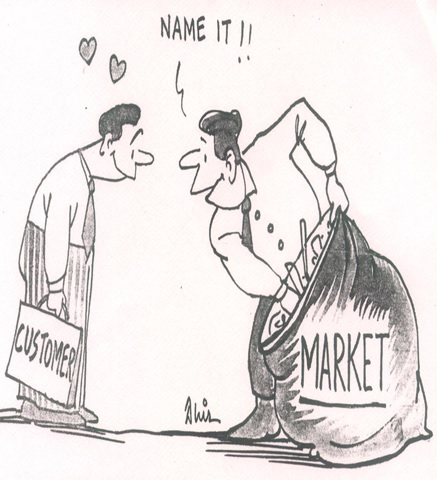 NAME IT !!
CUSTOMER
MARKET